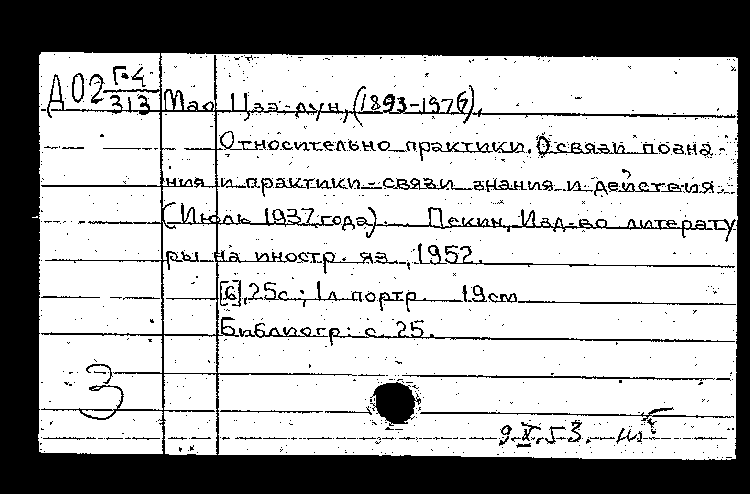 Д02 Г-4/313 Мао Цзэ-дун, (1893-1976).
Относительно практики. О связи позна-
ния и практики - связи знания и действия.
(Июль 1937 года). Пекин, Изд-во литерату
ры на иностр. яз., 1952.
[6], 25 с.; 1 л портр. 19 см
Библиогр: с 25.
3
9.X.53.